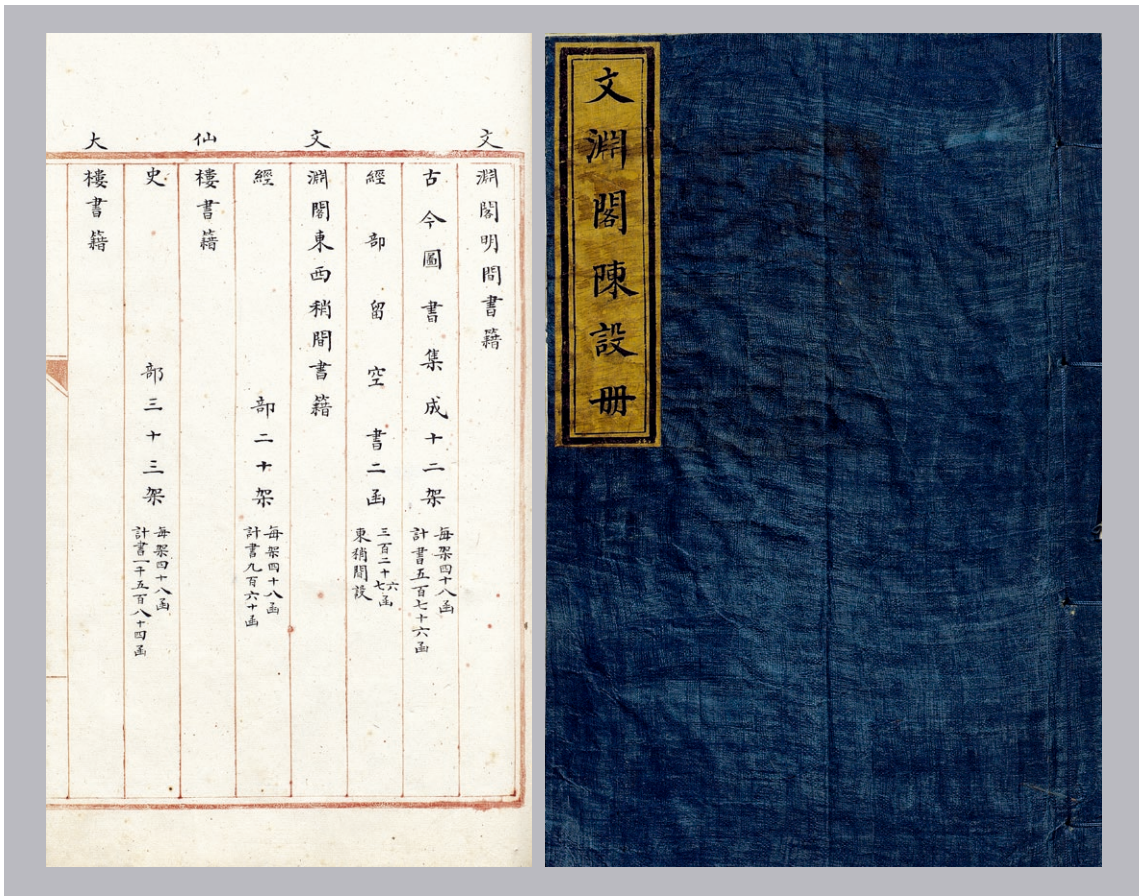 文淵閣陳設冊
文淵閣明間書籍
古今圖書集成十二架
每架四十八函
計書五百七十六函
經部留空書二函
三百二十六七函
東稍間設
文淵閣東西稍間書籍
經部二十架
每架四十八函
計書九百六十函
仙樓書籍
史部三十三架
每架四十八函
計書一千五百八十四函
大樓書籍